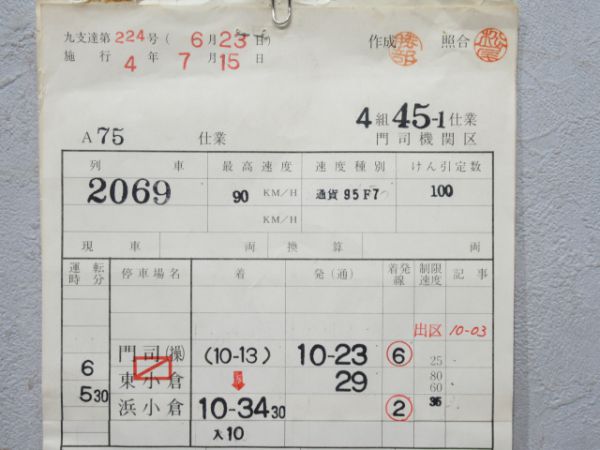 九支達第 224号 ( 6月23日)
作成 照合
施行 4年 7月15日
4組 45-1仕業
A75 仕業 門司機関区
列車 最高速度 速度種別 けん引定数
2069 90 KM/H 通貨95F7 100
KM/H
現車 両 換算 両
運転時分 停車場名 着 発(通) 着発線 制限速度 記事
出区 10-03
門司(操) (10-13) 10-23 6 25
6 東小倉 29 80 60
530 浜小倉 10-34 30 2 35
入10